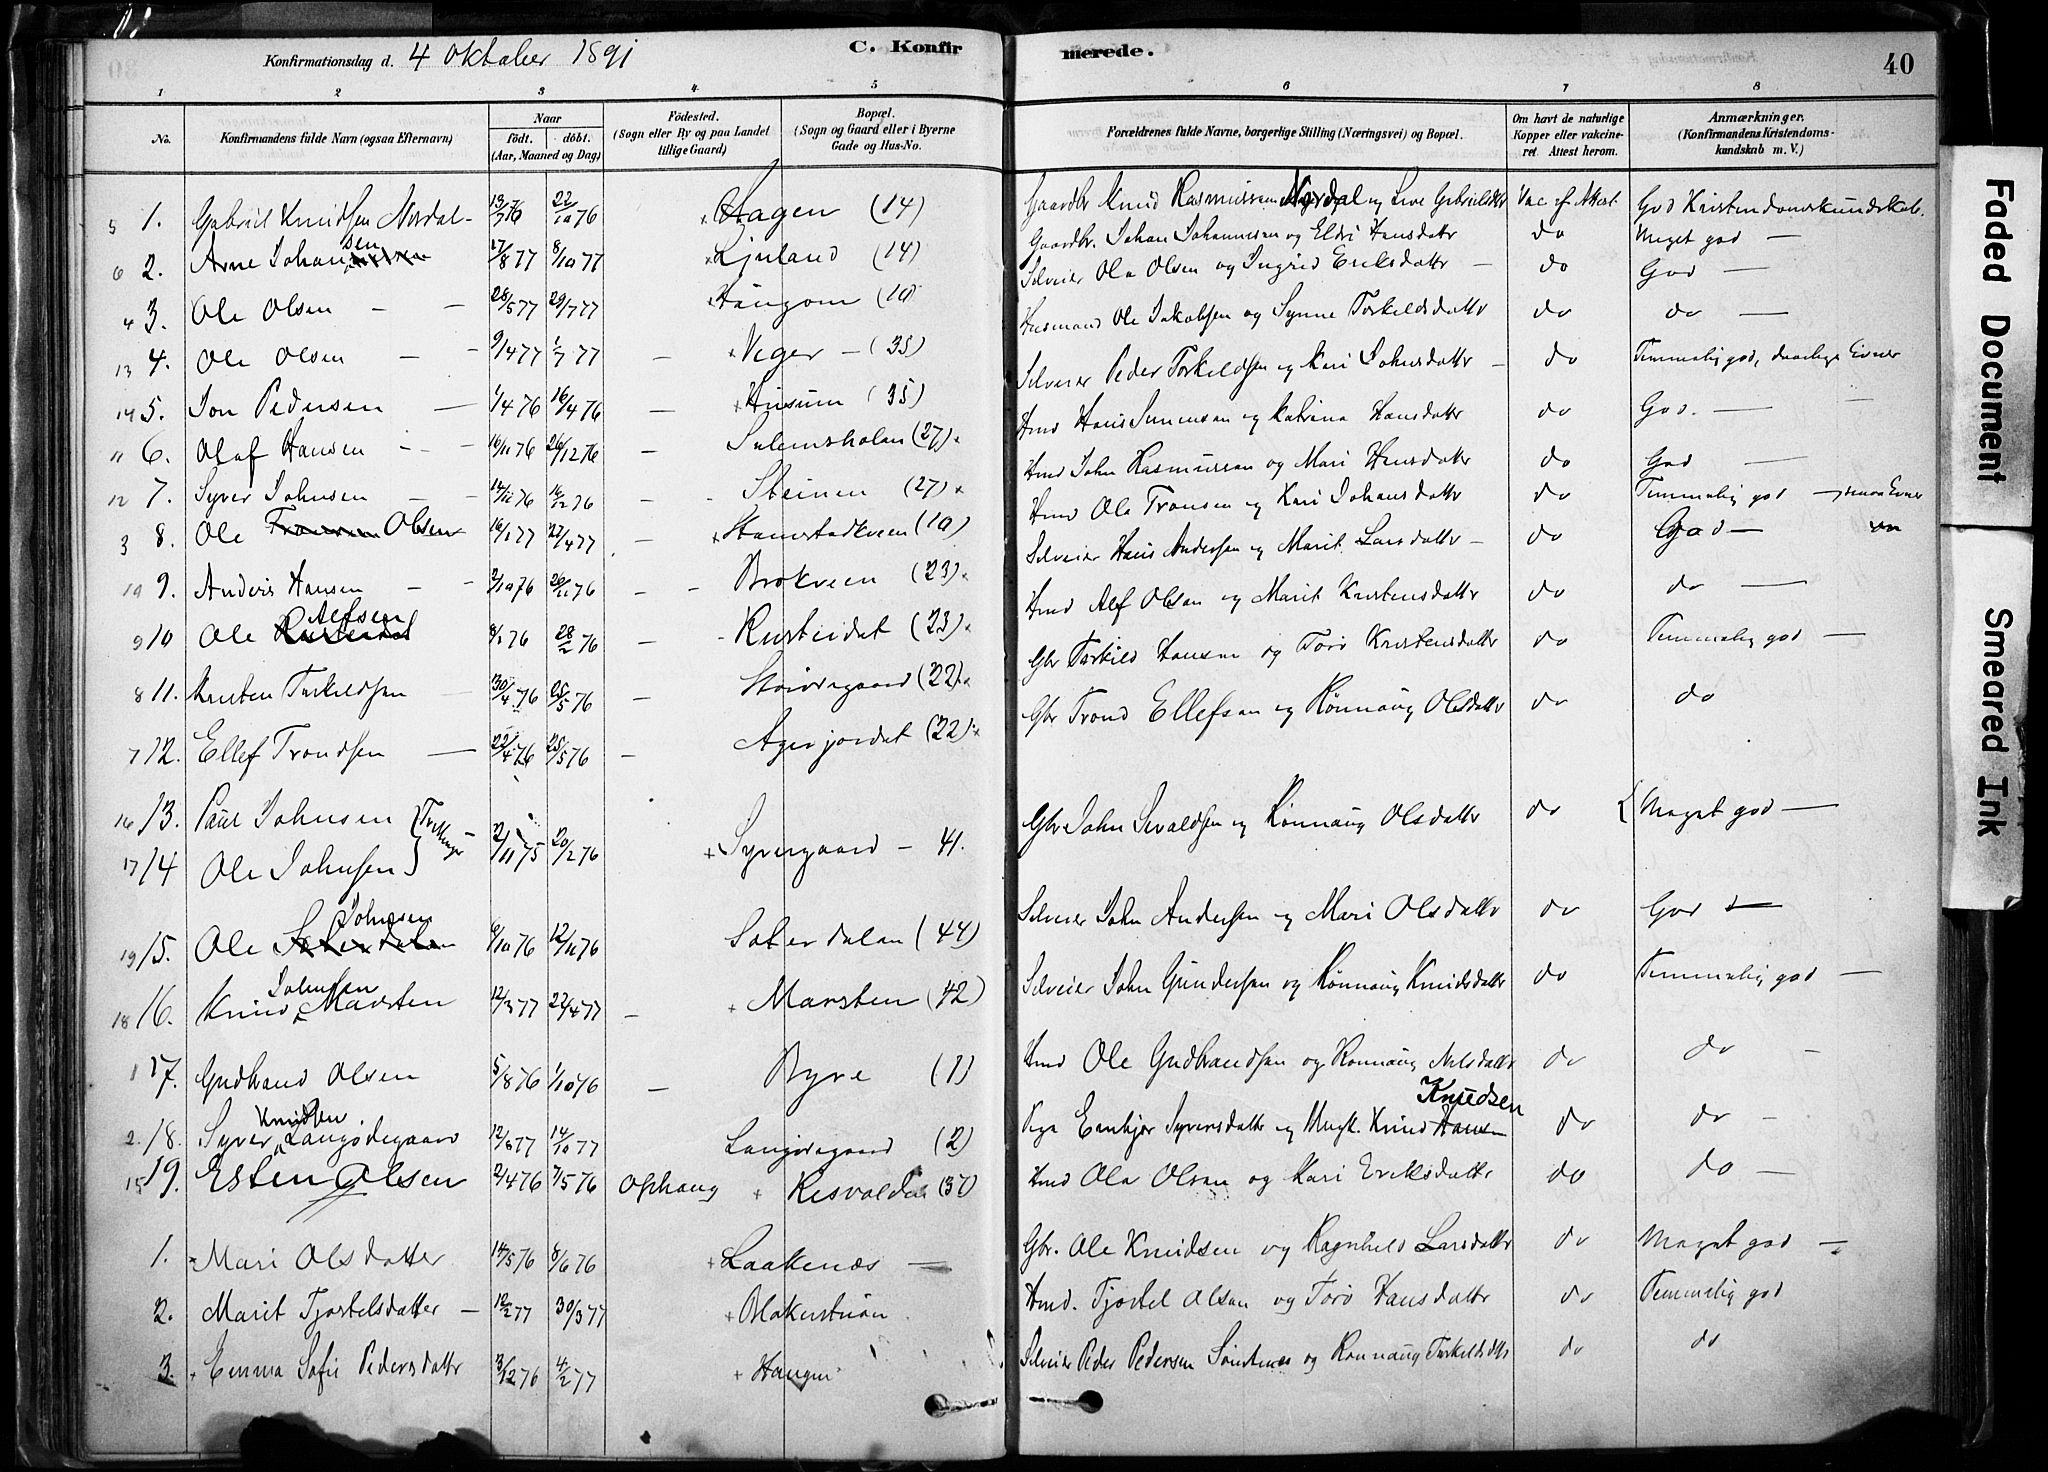 Konfirmationsdag d. 4 Oktober 1891 C. Konfirmerede. 40
1 2 3 4 5 6 7 8
No. Konfirmandens fulde Navn (ogsaa Efternavn) Naar Født. døbt. (Aar, Maaned og Dag) Fødested. (Sogn eller By og paa Landet tillige Gaard) Bopæl. (Sogn og Gaard eller i Byerne Gade og Hus-No. Forældrenes fulde Navne, borgerlige Stilling (Næringsvei) og Bopæl. Om havt de naturlige Kopper eller vakcineret. Attest herom. Anmærkninger. (Konfirmandens Kristendomskundskab m. V.)
5 1. Gabriel Knudsen Nordal 13/7 76 22/10 76 Hagen (14) Gaardbr Knud Rasmussen Nordal og Live Gabrielsdtr Vac ef Attest God Kristendomskundskab.
6 2. Arne Johansen 17/8 77 8/10 77 (14) Gaardbr. Johan Johannesen og Eldri Hansdattr do Meget god —
4 3. Ole Olsen 28/5 77 29/7 77 (10) Selveier Ola Olsen og Ingrid Eriksdattr do God —
13 4. Ole Olsen 9/4 77 1/7 77 — Veger — (35) Husmand Ole Jakobsen og Synne Torkeldsdattr do do —
14 5. Jon Pedersen 1/4 76 16/4 76 — Husum (35) Selveier Peder Torkeldsen og Kari Johnsdattr do Temmelig god, daarlige Evner
11 6. Olaf Hansen 16/11 76 26/12 76 — (27) Hmd Hans Simensen og Katrina Hansdattr do God. —
12 7. Syver Johnsen 14/11 76 16/12 76 — Steinen (27) Hmd John Rasmussen og Mari Hansdattr do God —
3 8. Ole Olsen 16/1 77 22/4 77 — (10) Hmd Ole Tronsen og Kari Johansdattr do Temmelig god — smaa Evner
10 9. Anders Hansen 2/10 76 26/11 76 — Brokveen (23) Selveier Hans Andersen og Marit Larsdattr — do God —
9 10 Ole Alfsen 8/1 76 28/2 76 — Rusteidet (23) Hmd Alf Olsen og Marit Kristensdattr do do —
8 11. Kristen Torkildsen 30/4 76 25/5 76 — (22) Gbr Torkild Hansen og Toro Kristensdattr do Temmelig god —
7 12. Ellef Trondsen — 22/4 76 25/5 76 — Agerjordet (22) Gbr Trond Ellefsen og Rønnaug Olsdattr do do
16 13. Paul Johnsen } Tvillinger 2/11 75 20/2 76 Syvergaard — 41. Gbr John Sivaldsen og Rønnaug Olsdattr do { Meget god —
17 14 Ole Johnsen
19 15. Ole Johnsen 6/10 76 12/11 76 Soterdalen (44) Selveier John Andersen og Mari Olsdattr do God —
18 16. Knud Johnsen Marsten 12/3 77 22/4 77 — Marsten (42) Selveier John Gundersen og Rønnaug Knudsdattr do Temmelig god —
1 17. Gudbrand Olsen 5/8 76 1/10 76 — Byre (1) Hmd Ole Gudbrandsen og Rønnaug Nilsdattr do do —
2. 18. Syver Knudsen Langødegaard 12/8 77 14/10 77 (2) Pige Embjør Syversdattr og Ungk. Knud Knudsen do do —
15 19. Esten Olsen 2/4 76 7/5 76 Ophaug Risvolden (37) Hmd Ola Olsen og Kari Eriksdattr do do —
1. Mari Olsdatter 14/5 76 8/6 76 Laakenæs — Gbr. Ole Knudsen og Ragnhild Larsdattr do Meget god —
2. Marit Tjostelsdatter — 12/2 77 30/3 77 Blakerstuen Hmd. Tjostel Olsen og Toro Hansdattr do Temmelig god
3. Emma Sofie Pedersdattr 3/12 76 4/2 77 Haugen Selveier Peder Pedersen og Rønnaug Torkeldsdtr do do
Faded Document
Smeared Ink